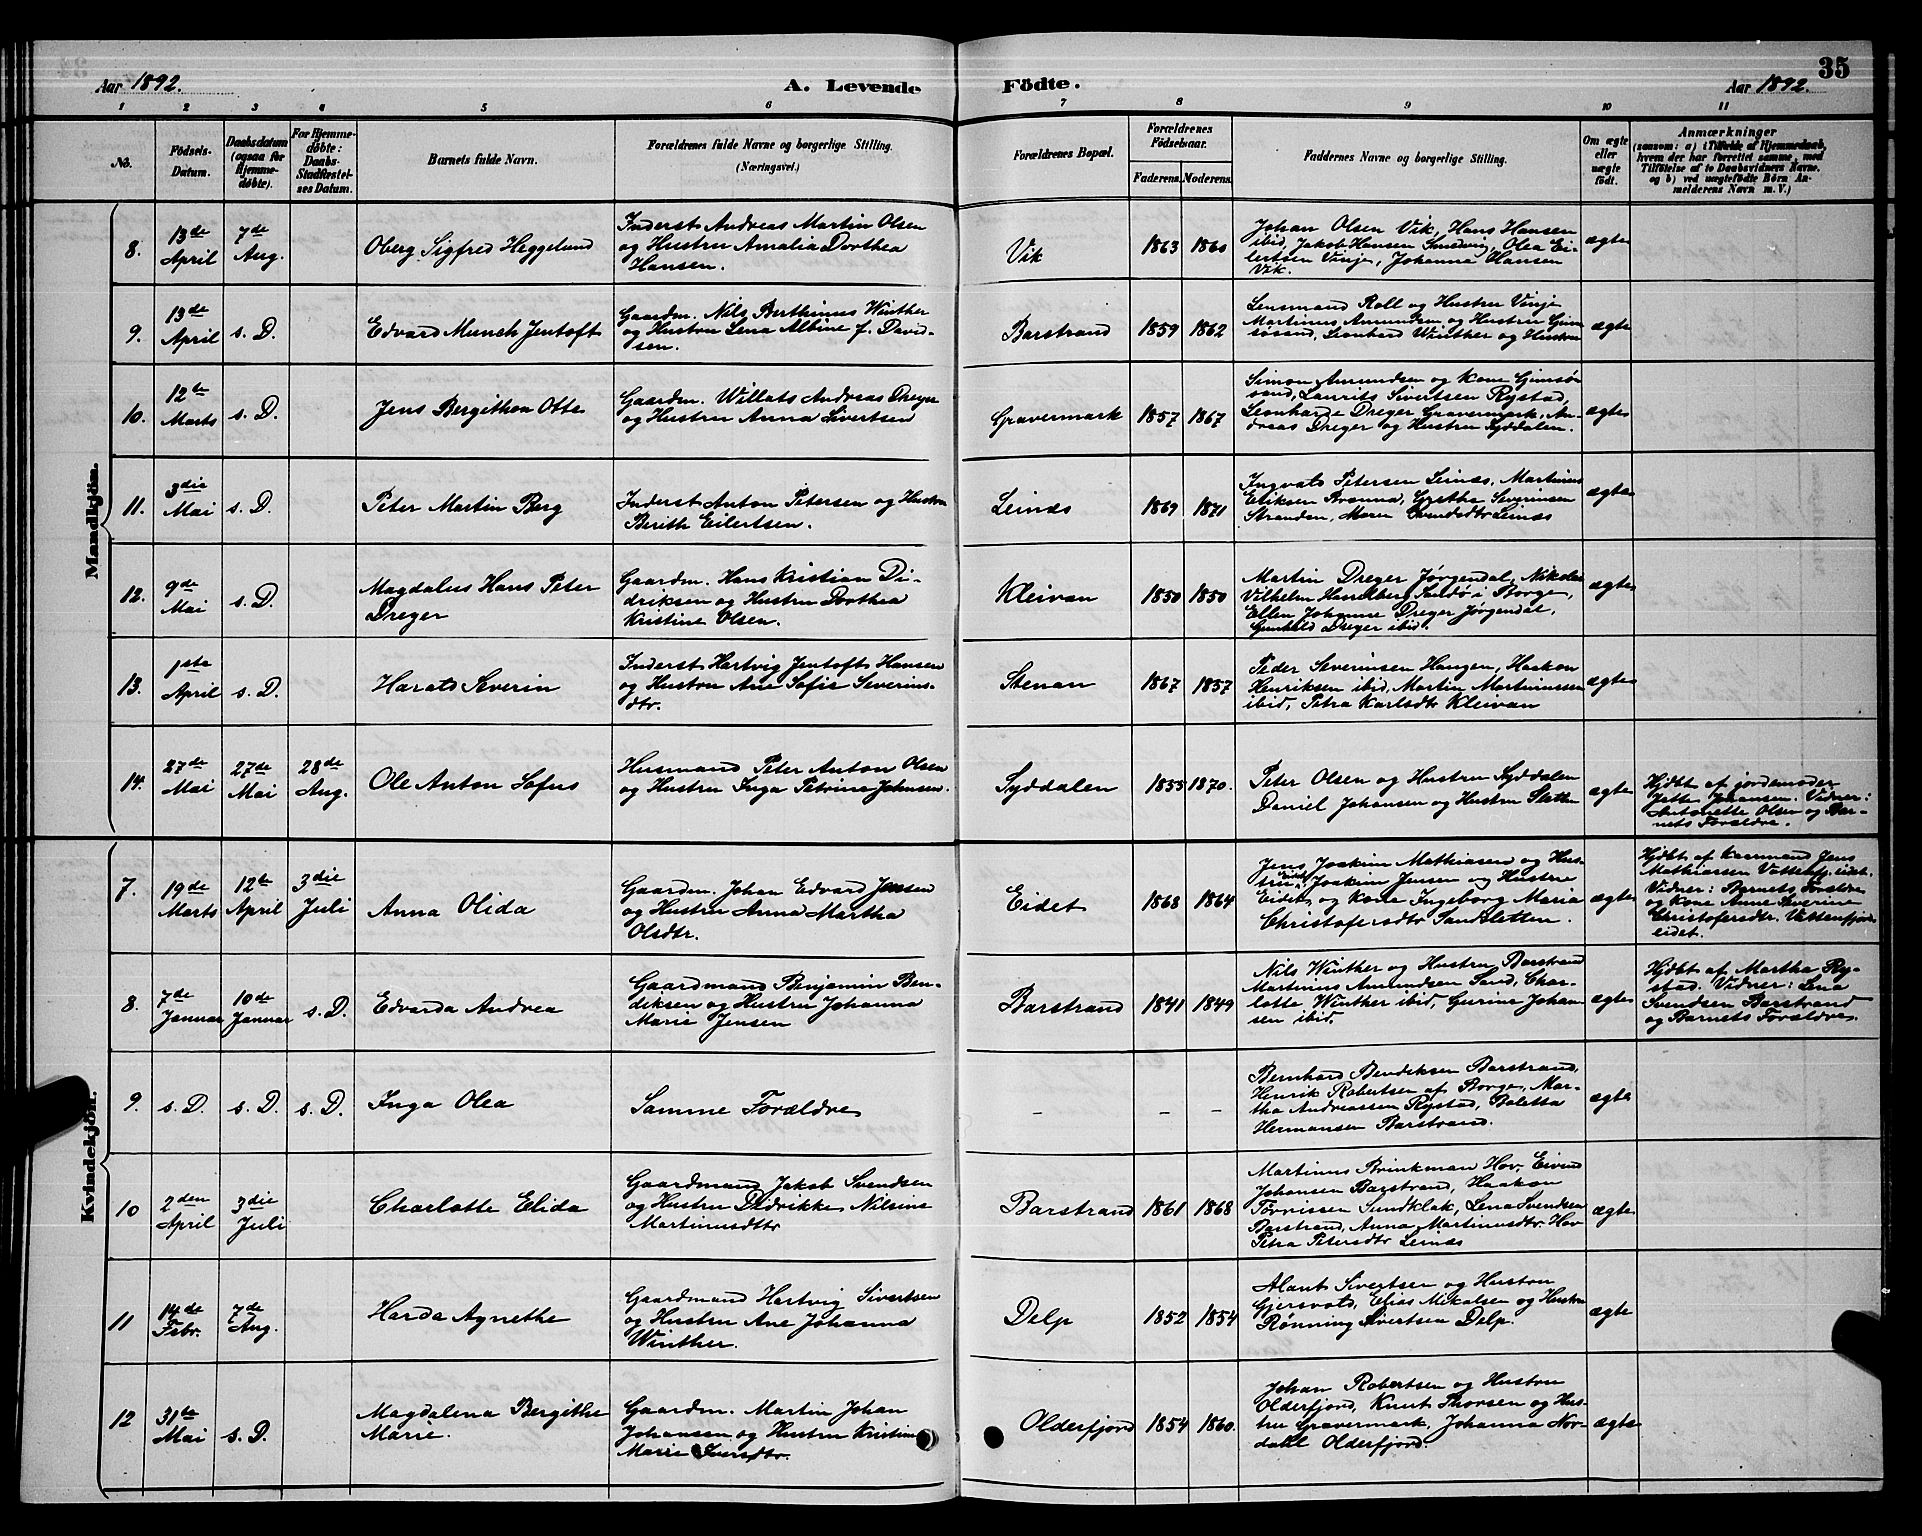 35
Aar 1892.
A. Levende
Födte.
Aar 1892.
1 2 3 4 5 6 7 8 9 10 11
No.
Födsels-
Datum.
Daabsdatum
(ogsaa for
Hjemme-
döbte).
For Hjemme-
döbte:
Daabs-
Stadfæstel-
ses Datum.
Barnets fulde Navn.
Forældrenes fulde Navne og borgerlige Stilling.
(Næringsvei.)
Forældrenes Bopæl.
Forældrenes
Födselsaar.
Faderens.
Moderens.
Faddernes Navne og borgerlige Stilling.
Om ægte
eller
uægte
födt.
Anmærkninger
(saasom: a) i Tilfælde af Hjemmedaab,
hvem der har forrettet samme, med
Tilföielse af to Daabsvidners Navne.
og b) ved uægtefödte Börn An-
melderens Navn m. V.)
Mandkjön.
8.
13de
April
7de
Aug.
Oberg Sigfred Heggelund
Inderst Andreas Martin Olsen
og Hustru Amalia Dorthea
Hansen.
Vik
1863
1860
Johan Olsen Vik, Hans Hansen
ibid, Jakob Hansen Smedvig, Olea Ei-
lertsen Vinje, Johanna Hansen
Vik.
ægte
9.
13de
April
s. D.
Edvard Munch Jentoft
Gaardm. Nils Berthinus Winther
og Hustru Lena Albine f. David-
sen.
Barstrand
1859
1862
Lensmand Roll og Hustru Vinje
Martinus Amundsen og Hustru Gim-
søsand, Leonhard Winther og Hustru
ægte
10.
12te
Marts
s. D.
Jens Bergithon Otte
Gaardm. Willats Andreas Dreyer
og Hustru Anna Sivertsen
Gravermark
1857
1867
Simon Amundsen og Kone Gimsø
sand, Laurits Sivertsen Rystad,
Leonharde Dreyer Gravermark, An-
dreas Dreyer og Hustru Syddalen.
ægte
11.
3die
Mai
s. D.
Peter Martin Berg
Inderst Anton Petersen og Hustru
Berith Eilertsen.
Leinæs
1869
1871
Ingvald Petersen Leinæs, Martinus
Eriksen Brenna, Severinsen
Stranden, Maren Svendsdtr Leinæs
ægte
12.
9de
Mai
s. D.
Magdalus Hans Peter
Dreyer
Gaardm. Hans Kristian Di-
driksen og Hustru Dorthea
Kristine Olsen.
Kleivan
1850
1850
Martin Dreyer Jørgendal, Nikolai
Vilhelm Hasselberg Sundø i Borge,
Ellen Johanne Dreyer Jørgendal,
Gunhild Dreyer ibid.
ægte
13.
1ste
April
s. D.
Harald Severin
Inderst Hartvig Jentoft Hansen
og Hustru Ane Sofie Severins-
dtr.
Stenan
1867
1857
Peder Severinsen Haugen, Haakon
Henriksen ibid, Martin Martinussen
ibid, Petra Karlsdtr Kleivan
ægte
14.
27de
Mai
27de
Mai
28de
Aug.
Ole Anton Sofus
Husmand Peter Anton Olsen
og Hustru Inga Petrine Johnsens.
Syddalen
1855
1870.
Peter Olsen og Hustru Syddalen
Daniel Johansen og Hustru Sletten
ægte
Hjdbt af jordemoder
Jette Johansen. Vidner:
Antonette Olsen og Bar-
nets Forældre.
Kvindekjön.
7.
19de
Marts
12te
April
3die
Juli
Anna Olida
Gaardm. Johan Edvard Jensen
og Hustru Anna Martha
Olsdtr.
Eidet
1868
1864
Jens Joakim Mathiasen og Hus-
tru, Joakim Jensen og Hustru
Eidet og Kone Ingeborg Maria
Christofersdtr Sandsletten.
ægte
Hjdbt af Kaarmand Jens
Mathiassen Vattenfj. eidet.
Vidner: Barnets Forældre
og Kone Anne Severine
Christofersdtr. Vattenfjord
eidet.
8.
7de
Januar
10de
Januar
s. D.
Edvarda Andrea
Gaardmand Benjamin Ben-
diksen og Hustru Johanna
Marie Jensen
Barstrand
1841
1849
Nils Winther og Hustru Barstrand
Martinus Amundsen Sand, Char-
lotte Winther ibid, Gurine Johan
sen ibid.
ægte
Hjdbt af Martha Ry-
stad. Vidner: Lena
Svendsen Barstrand
og Barnets Forældre.
9.
s. D.
s. D.
s. D.
Inga Olea
Samme Forældre
–
–
–
Bernhard Bendiksen Barstrand,
Henrik Robertsen af Borge, Mar-
tha Andreassen Rystad, Boletta
Hermansen Barstrand.
ægte
10
2den
April
3die
Juli
Charlotte Elida
Gaardmand Jakob Svendsen
og Hustru Didrikke Nilsine
Martinusdtr
Barstrand
1861
1868
Martinus Brinkman Hov, Eivind
Johansen Barstrand, Haakon
Torrissen Sundklak, Lena Svendsen
Barstrand, Anna Martinusdtr. Hov
Petra Petersdtr Leinæs
ægte
11
14de
Febr.
7de
Aug.
Harda Agnethe
Gaardmand Hartvig Sivertsen
og Hustru Ane Johanna
Winther.
Delp
1852
1854
Alant Sivertsen og Hustru
Gjersvold, Elias Mikalsen og Hustru
Rønning Sivertsen Delp.
ægte
12
31te
Mai
s. D.
Magdalena Bergithe
Marie.
Gaardm. Martin Johan
Johansen og Hustru Kristine
Marie
Olderfjord
1854
1860.
Johan Robertsen og Hustru
Olderfjord, Knut Thorsen og Hus-
tru Gravermark, Johanna Nor-
dahl Olderfjord.
ægte